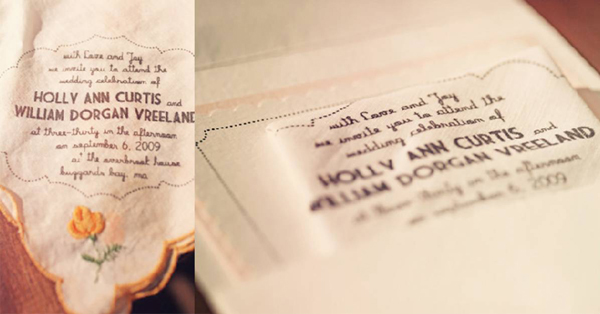 with Love and Joy
we invite you to attend the
wedding celebration of
HOLLY ANN CURTIS and
WILLIAM DORGAN VREELAND
at three-thirty in the afternoon
on september 6, 2009
at the overbrook house
buzzards bay, ma
with Love and Joy
we invite you to attend the
wedding celebration of
HOLLY ANN CURTIS and
WILLIAM DORGAN VREELAND
at three thirty in the afternoon
on september 6, 2009